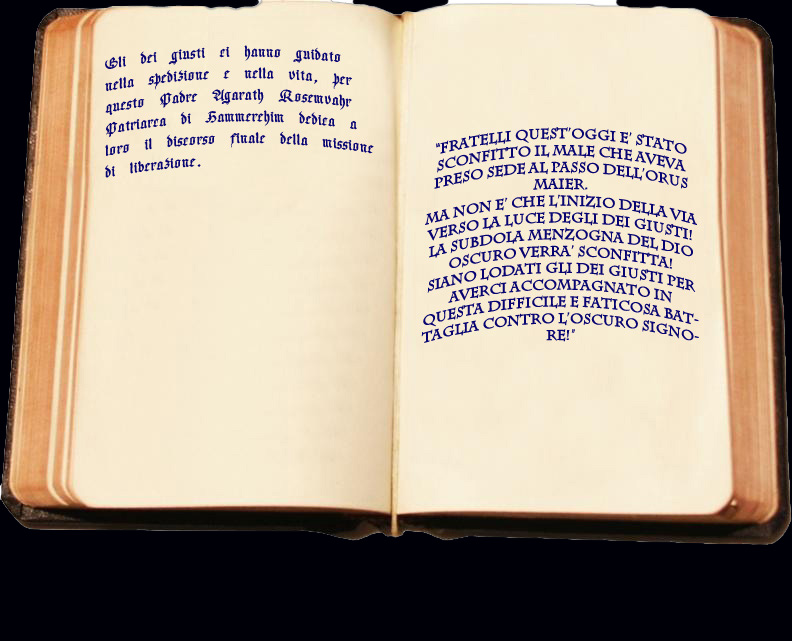 Gli dei giusti ci hanno guidato
nella spedizione e nella vita, per
questo Padre Agarath Rosemvahr
Patriarca di Hammerehim dedica a
loro il discorso finale della missione
di liberazione.
"FRATELLI QUEST'OGGI E' STATO
SCONFITTO IL MALE CHE AVEVA
PRESO SEDE AL PASSO DELL'ORUS
MAIER.
MA NON E' CHE L'INIZIO DELLA VIA
VERSO LA LUCE DEGLI DEI GIUSTI!
LA SUBDOLA MENZOGNA DEL DIO
OSCURO VERRA' SCONFITTA!
SIANO LODATI GLI DEI GIUSTI PER
AVERCI ACCOMPAGNATO IN
QUESTA DIFFICILE E FATICOSA BAT-
TAGLIA CONTRO L'OSCURO SIGNO-
RE!"